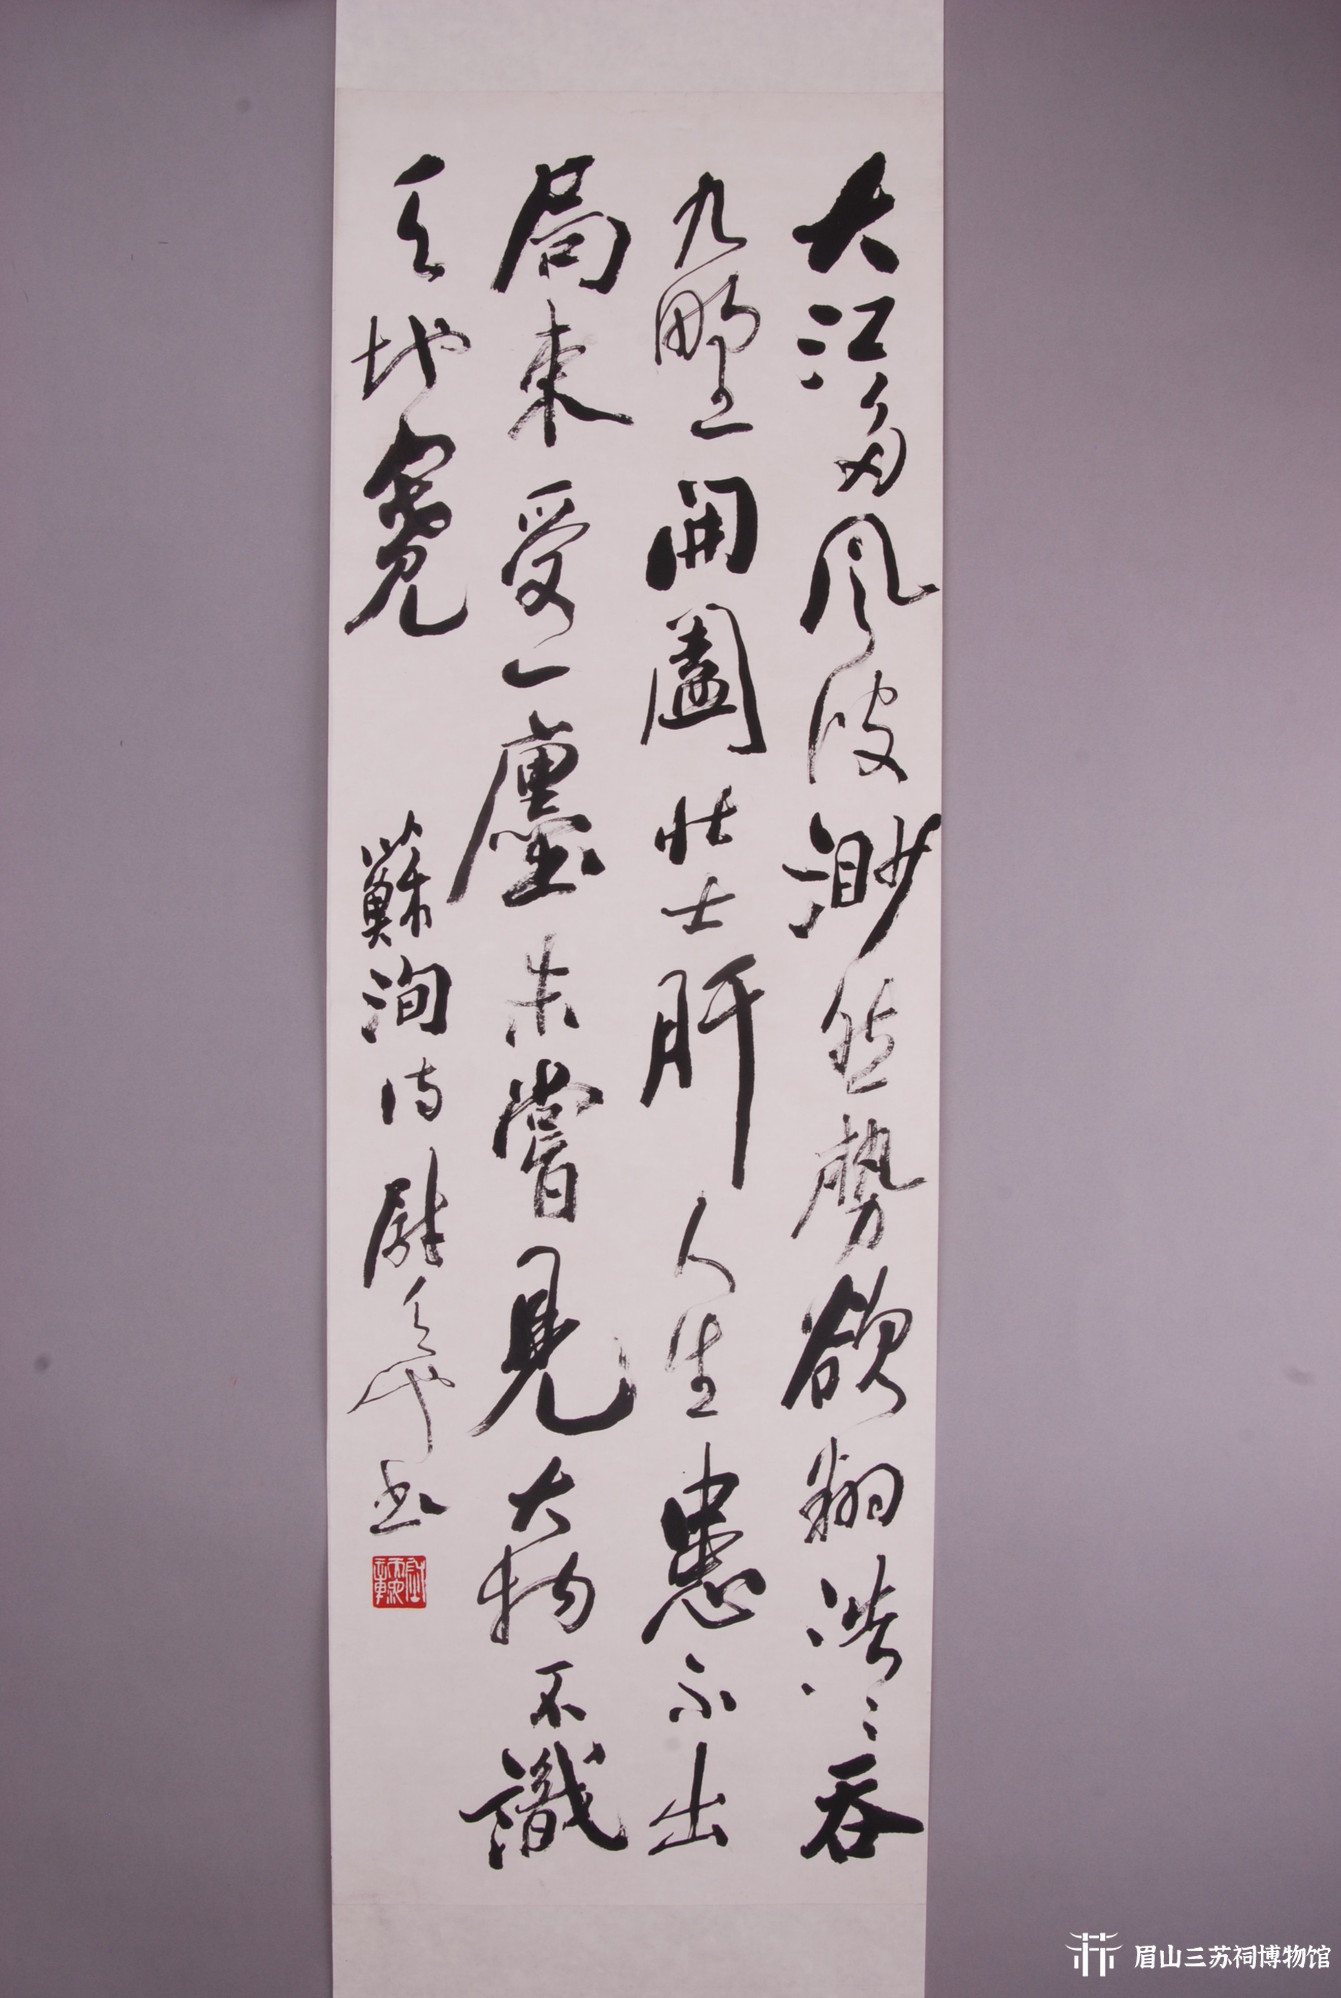 大江多風波渺然勢欲翻浩浩吞
九野開闔壯士肝人生患不出
局束受一廛未嘗見大物不識
天地寬
蘇洵詩 尉天池書
眉山三苏祠博物馆